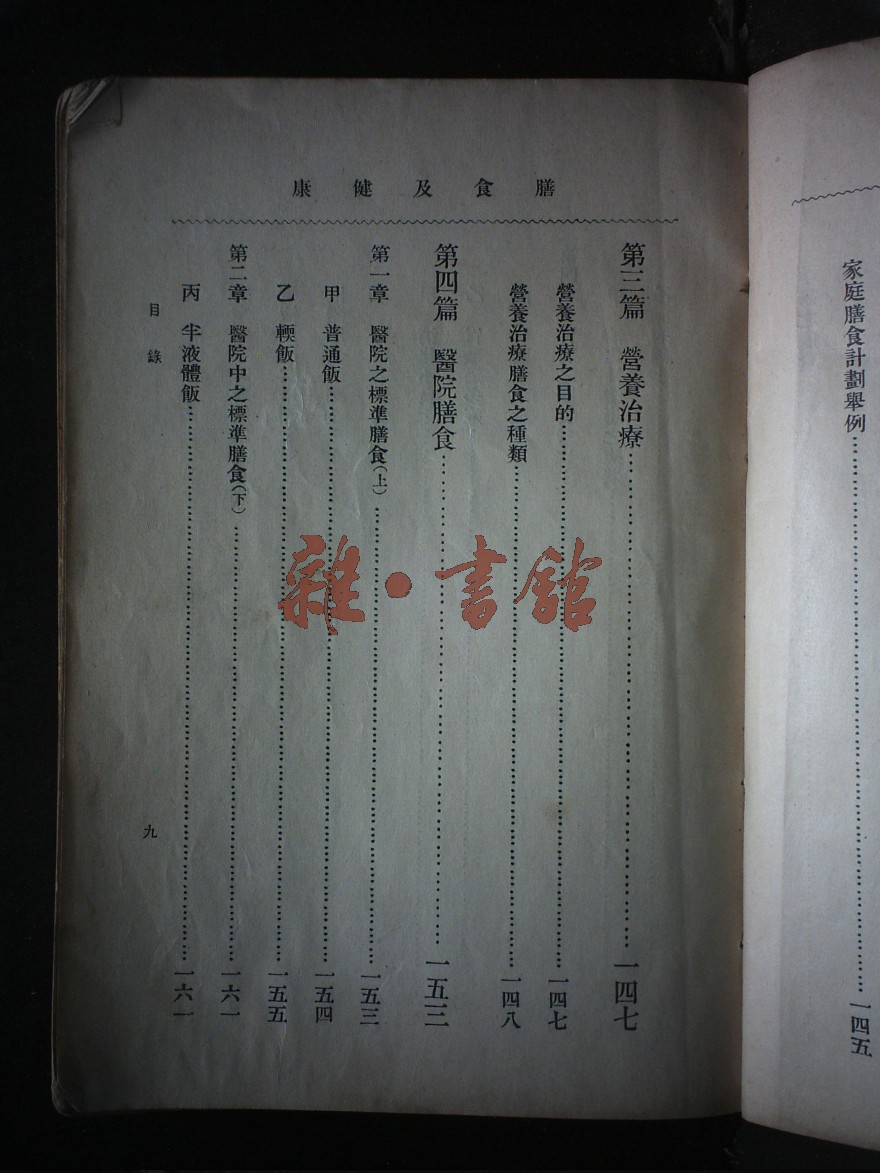 家庭膳食計劃舉例……一四五
膳食及健康
第三篇 營養治療……一四七
營養治療之目的……一四七
營養治療膳食之種類……一四八
第四篇 醫院膳食……一五三
第一章 醫院之標準膳食(上)……一五三
甲 普通飯……一五四
乙 輭飯……一五五
第二章 醫院中之標準膳食(下)……一六一
丙 半液體飯……一六一
目錄 九
雜·書館